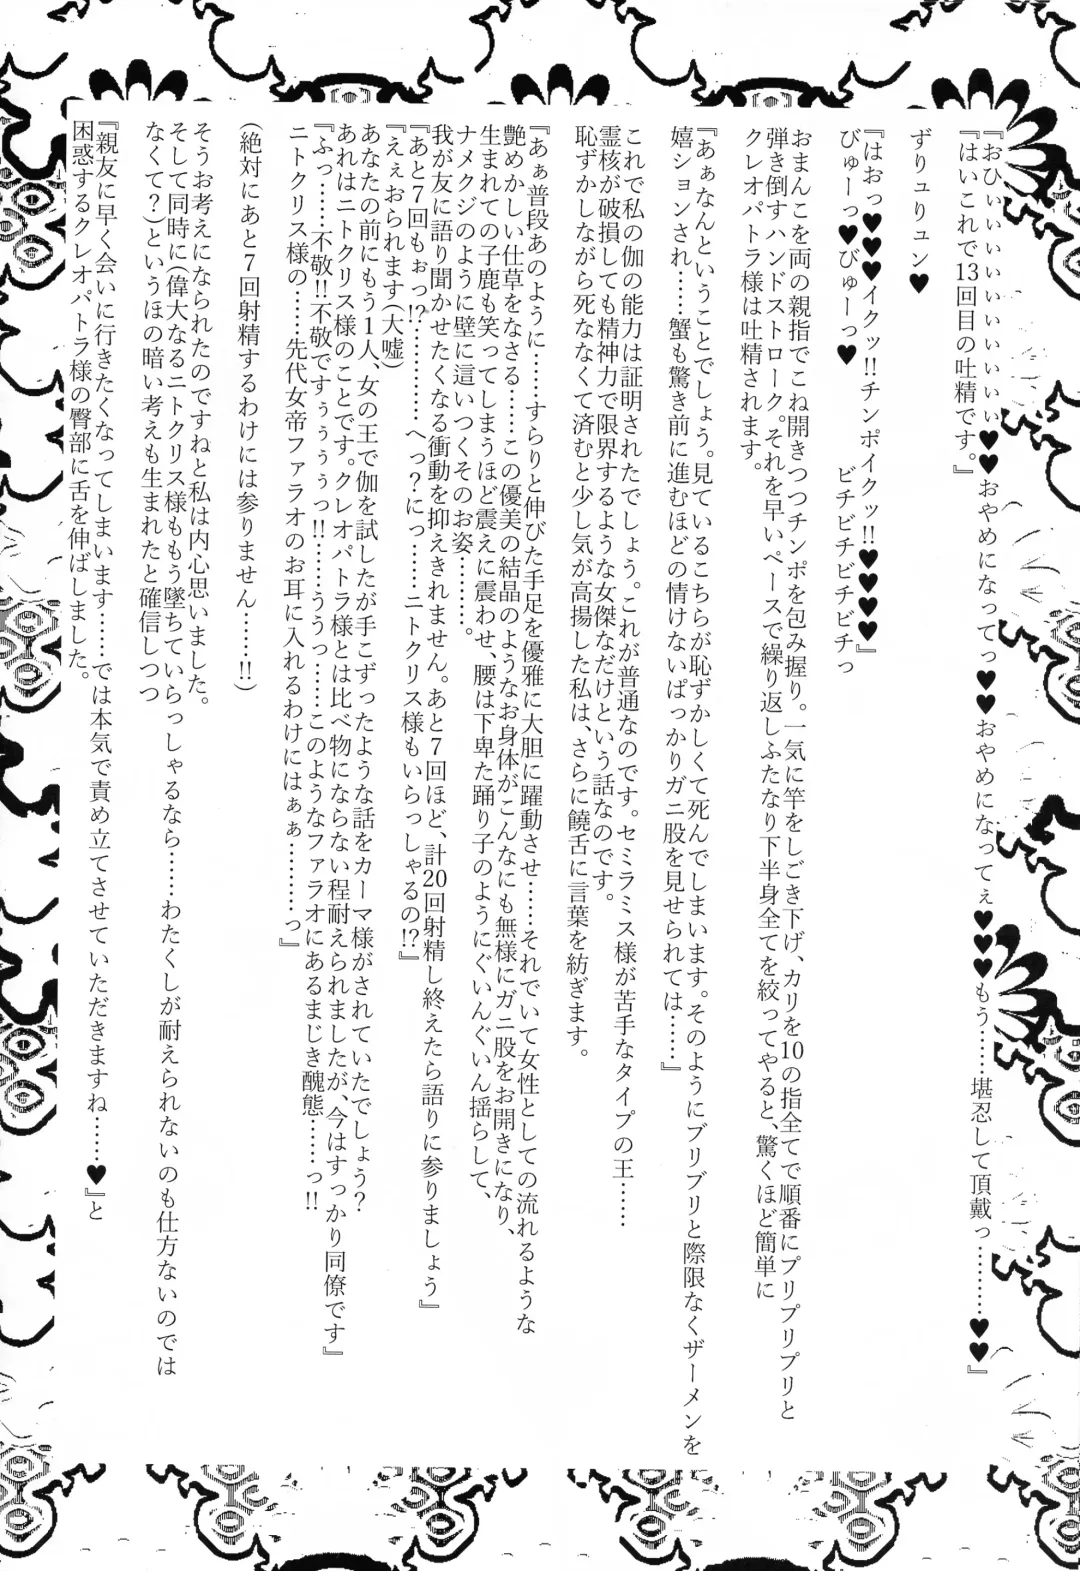 『おひぃぃぃぃぃぃぃぃ♥♥おやめになってっ♥♥おやめになってぇ♥♥♥もう……堪忍して頂戴っ………♥♥』
『はいこれで13回目の吐精です。』
ずりュりュン♥
『はおっ♥♥♥イクッ!!チンポイクッ!!♥♥♥♥』
びゅーっ♥びゅーっ♥　ビチビチビチビチっ
おまんこを両の親指でこね開きつつチンポを包み握り。一気に竿をしごき下げ、カリを10の指全てで順番にプリプリプリと
弾き倒すハンドストローク。それを早いペースで繰り返しふたなり下半身全てを絞ってやると、驚くほど簡単に
クレオパトラ様は吐精されます。
『あぁなんということでしょう。見ているこちらが恥ずかしくて死んでしまいます。そのようにブリブリと際限なくザーメンを
嬉ションされ……蟹も驚き前に進むほどの情けないぱっかりガニ股を見せられては……』
これで私の伽の能力は証明されたでしょう。これが普通なのです。セミラミス様が苦手なタイプの王……
霊核が破損しても精神力で限界するような女傑なだけという話なのです。
恥ずかしながら死ななくて済むと少し気が高揚した私は、さらに饒舌に言葉を紡ぎます。
『あぁ普段あのように……すらりと伸びた手足を優雅に大胆に躍動させ……それでいて女性としての流れるような
艶めかしい仕草をなさる……この優美の結晶のようなお身体がこんなにも無様にガニ股をお開きになり、
生まれての子鹿も笑ってしまうほど震えに震わせ、腰は下卑た踊り子のようにぐいんぐいん揺らして、
ナメクジのように壁に這いつくそのお姿………。
我が友に語り聞かせたくなる衝動を抑えきれません。あと7回ほど、計20回射精し終えたら語りに参りましょう』
『あと7回もぉっ!?………へっ?にっ……ニトクリス様もいらっしゃるの!?』
『えぇおられます(大嘘)
あなたの前にもう1人、女の王で伽を試したが手こずったような話をカーマ様がされていたでしょう?
あれはニトクリス様のことです。クレオパトラ様とは比べ物にならない程耐えられましたが、今はすっかり同僚です』
『ふっ……不敬!!不敬ですぅぅぅぅっ!!……ううっ……このようなファラオにあるまじき醜態……っ!!
ニトクリス様の……先代女帝ファラオのお耳に入れるわけにはぁぁ………っ』
(絶対にあと7回射精するわけには参りません……!!)
そうお考えになられたのですねと私は内心思いました。
そして同時に(偉大なるニトクリス様ももう墜ちていらっしゃるなら……わたくしが耐えられないのも仕方ないのでは
なくて?)というほの暗い考えも生まれたと確信しつつ
『親友に早く会いに行きたくなってしまいます……では本気で責め立てさせていただきますね……♥』と
困惑するクレオパトラ様の臀部に舌を伸ばしました。